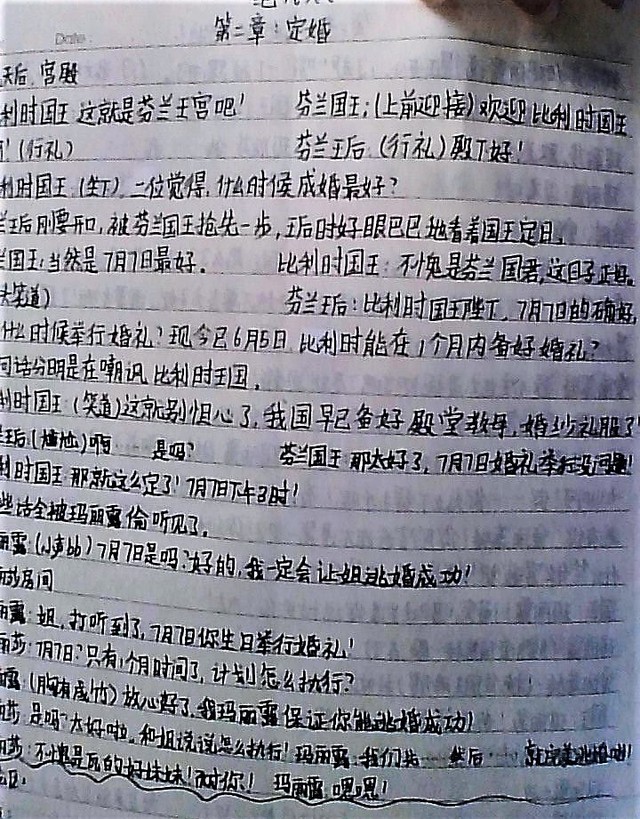 Date:
第二章:定婚
天后,宫殿
利时国王 这就是芬兰王宫吧! 芬兰国王:(上前迎接)欢迎 比利时国王
!(行礼) 芬兰王后:(行礼)殿下好!
利时国王:(坐下)二位觉得,什么时候成婚最好?
王后刚要开口,被芬兰国王抢先一步,王后时好眼巴巴地看着国王定日。
国王:当然是7月7日最好。 比利时国王:不愧是芬兰国君,这日子正好。
笑道) 芬兰王后:比利时国王陛下,7月7日的确好,
什么时候举行婚礼?现今已6月5日,比利时能在1个月内备好婚礼?
句话分明是在嘲讽 比利时王国。
利时国王:(笑道)这就别担心了,我国早已备好 殿堂教母,婚纱礼服了!
王后:(尴尬)啊 是吗? 芬兰国王 那太好了,7月7日婚礼举行没问题!
利时国王 那就这么定了!7月7日下午3时!
些话全被玛丽露偷听见了。
丽露:(小声bb)7月7日是吗?好的,我一定会让姐逃婚成功!
莎房间
丽露:姐,打听到了,7月7日你生日举行婚礼!
丽莎:7月7日?只有1个月时间了,计划怎么执行?
露:(胸有成竹)放心好了,我玛丽露保证你能逃婚成功!
莎 是吗 太好啦,和姐说说怎么执行!玛丽露:我们先……然后……就完美逃婚啦!
莎:不愧是瓦的好妹妹! 玛丽露 嘿嘿!